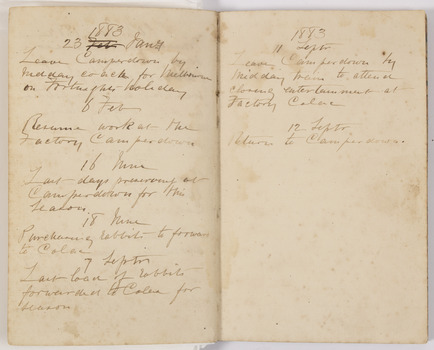 1883
23 Feb Jany
Leave Camperdown by
midday coach for Melbourne
on fortnights holiday
6 Feb
Resume work at the
Factory Camperdown
16 June
Last days preserving at
Camperdown for this
Season
18 June
Purchasing rabbits to forward
to Colac
7 Septr
Last load of rabbits
forwarded to Colac for
season
1883
11 Septr
Leave Camperdown by
midday train to attend
closing entertainment at
Factory Colac
12 Septr
Return to Camperdown.